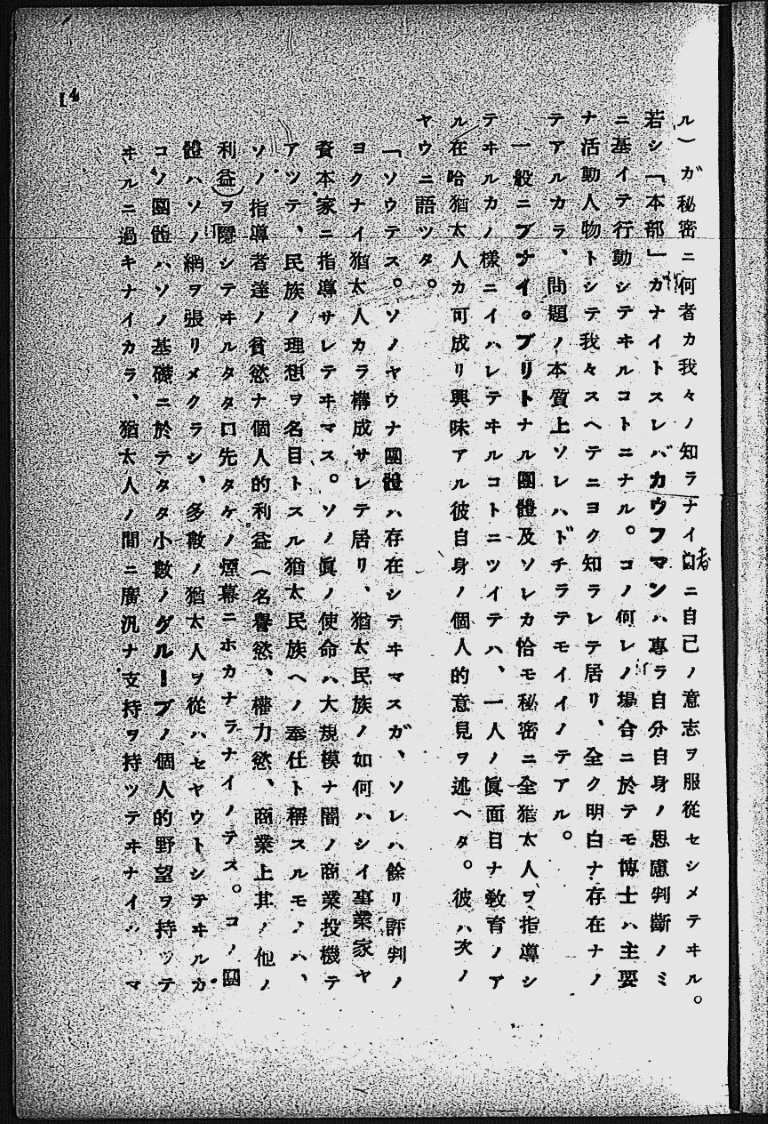 ル）ガ秘密ニ何者カ我々ノ知ラナイ者ニ自己ノ意志ヲ服從セシメテヰル。
若シ「本部」ガナイトスレバカウフマンハ專ラ自分自身ノ思慮判斷ノミ
ニ基イテ行動シテヰルコトニナル。コノ何レノ場合ニ於テモ博士ハ主要
ナ活動人物トシテ我々スヘテニヨク知ラレテ居リ、全ク明白ナ存在ナノ
テアルカラ、問題ノ本質上ソレハドチラテモイイノテアル。
一般ニブナイ。ブリトナル團體及ソレカ恰モ秘密ニ全猶太人ヲ指導シ
テヰルカノ樣ニイハレテヰルコトニツイテハ、一人ノ眞面目ナ敎育ノア
ル在哈猶太人カ可成リ興味アル彼自身ノ個人的意見ヲ述ヘタ。彼ハ次ノ
ヤウニ語ツタ。
「ソウテス。ソノヤウナ團體ハ存在シテヰマスガ、ソレハ餘リ評判ノ
ヨクナイ猶太人カラ構成サレテ居リ、猶太民族ノ如何ハシイ事業家ヤ
資本家ニ指導サレテヰマス。ソノ眞ノ使命ハ大規模ナ闇ノ商業投機テ
アツテ、民族ノ理想ヲ名目トスル猶太民族ヘノ奉仕ト稱スルモノハ、
ソノ指導者達ノ貧慾ナ個人的利益（名譽慾、權力慾、商業上其ノ他ノ
利益）ヲ隱シテヰルタタ口先タケノ煙幕ニホカナラナイノテス。コノ團
體ハソノ網ヲ張リメクラシ、多數ノ猶太人ヲ從ハセヤウトシテヰルカ
コノ團體ハソノ基礎ニ於テタタ小數ノグループノ個人的野望ヲ持ツテ
ヰルニ過キナイカラ、猶太人ノ間ニ廣汎ナ支持ヲ持ツテヰナイ。マ
14